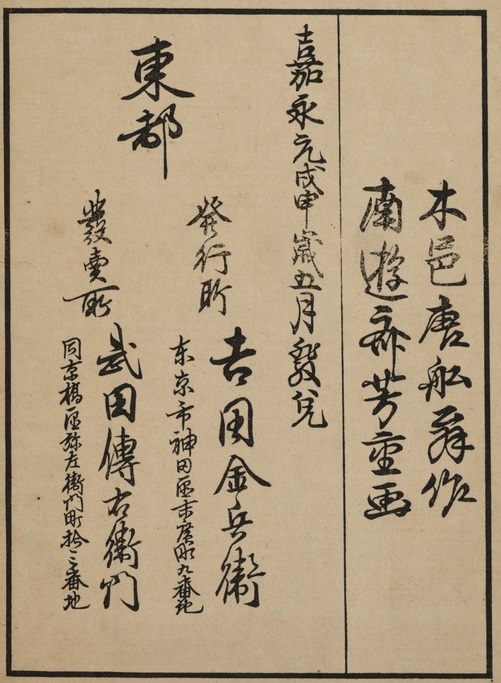 木邑唐船舜作
南遊斎芳重画
嘉永元戊申歳五月發兌
東都
発行所
吉田金兵衛
東京市神田區末廣町九番地
發賣所
武田傳右衛門
同京橋區弥左衛門町拾三番地